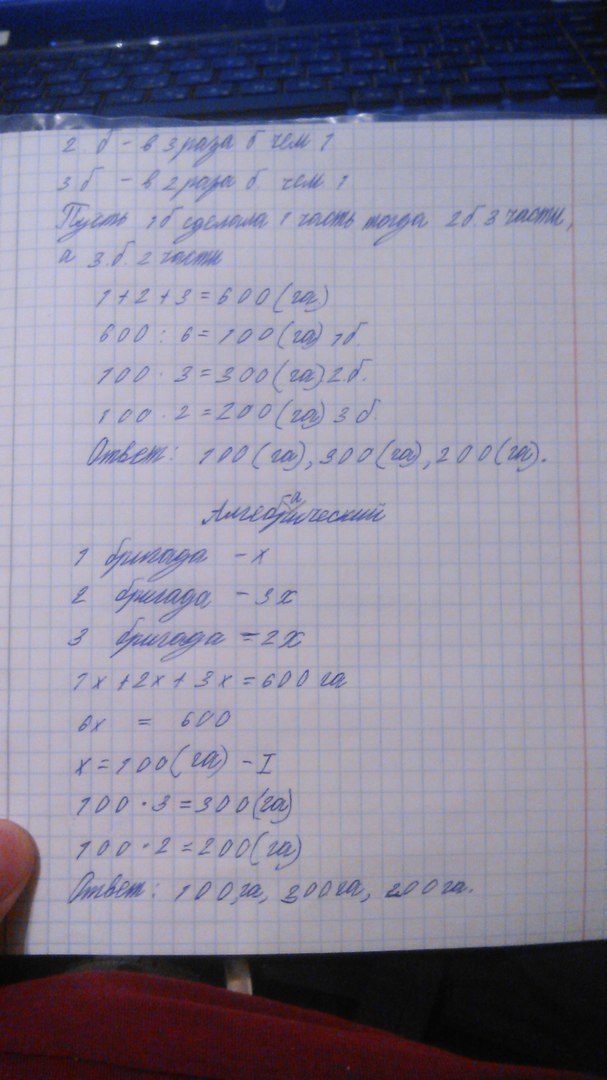 2 б - в 3 раза б чем 1
3 б - в 2 раза б чем 1
Пусть 1б сделала 1 часть тогда 2б. 3 части,
а 3.б. 2 части
1+2+3=600(га)
600 : 6=100(га) 1б.
100 · 3=300(га) 2б.
100 · 2=200(га) 3 б.
Ответ: 100(га), 300(га), 200(га).
Алгебраический
1 бригада - х
2 бригада - 3х
3 бригада - 2х
1х+2х+3х=600 га
6х = 600
х=100(га) - I
100 · 3=300(га)
100 · 2=200(га)
Ответ: 100га, 300га, 200га.